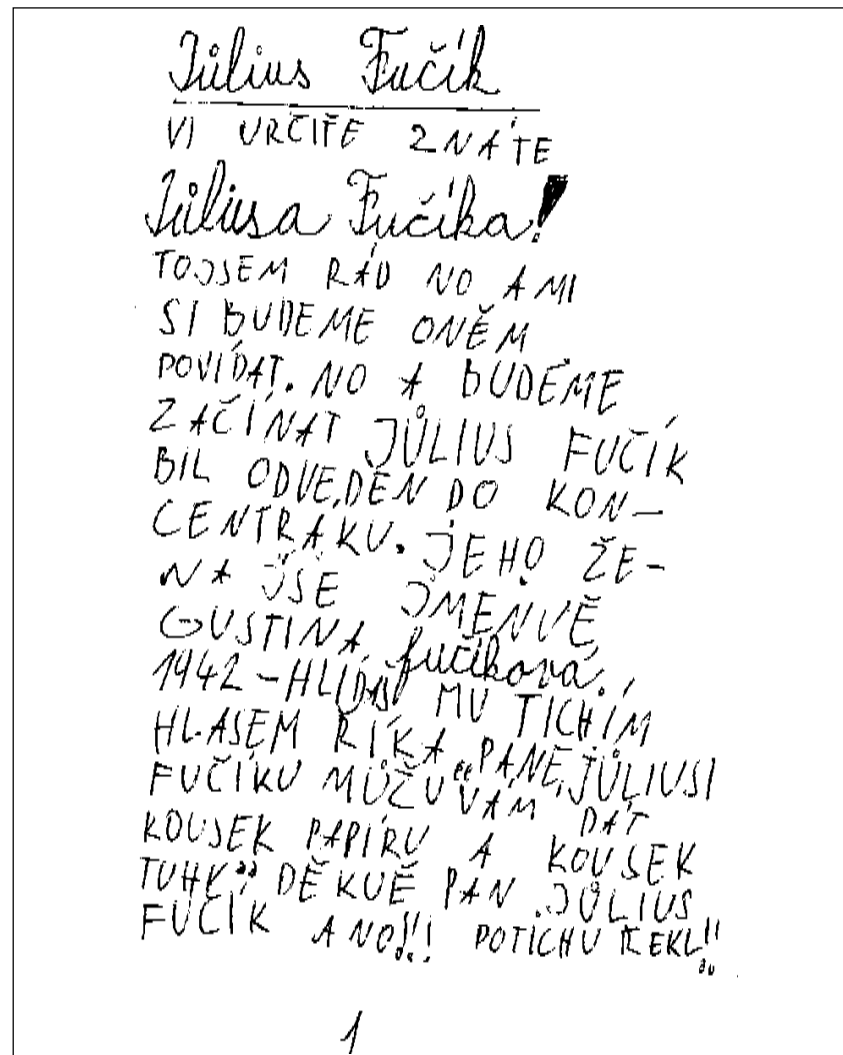 Jůlius Fučík
VI URČIŤE ZNÁTE
Jůliusa Fučíka!
TOJSEM RÁD NO A MI
SI BUDEME ONĚM
POVÍDAT. NO A BUDEME
ZAČÍNAT JŮLIUS FUČÍK
BIL ODVEDEN DO KON-
CENTRAKU. JEHO ŽE-
NA JSE JMENUĚ
GUSTINA fučíková.
1942 - HLÍDAČ MU TICHÍM
HLASEM ŘÍKA „PANE JŮLIUSI
FUČÍKU MŮŽU VÁM DÁT
KOUSEK PAPÍRU A KOUSEK
TUHK? DĚKUĚ PAN JŮLIUS
FUČÍK ANO!!! POTICHU ŘEKL!!
1